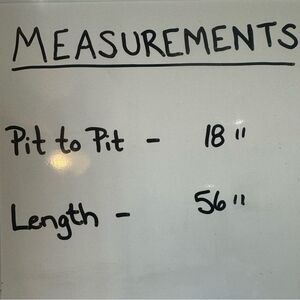 MEASUREMENTS
Pit to Pit - 18"
Length - 56"